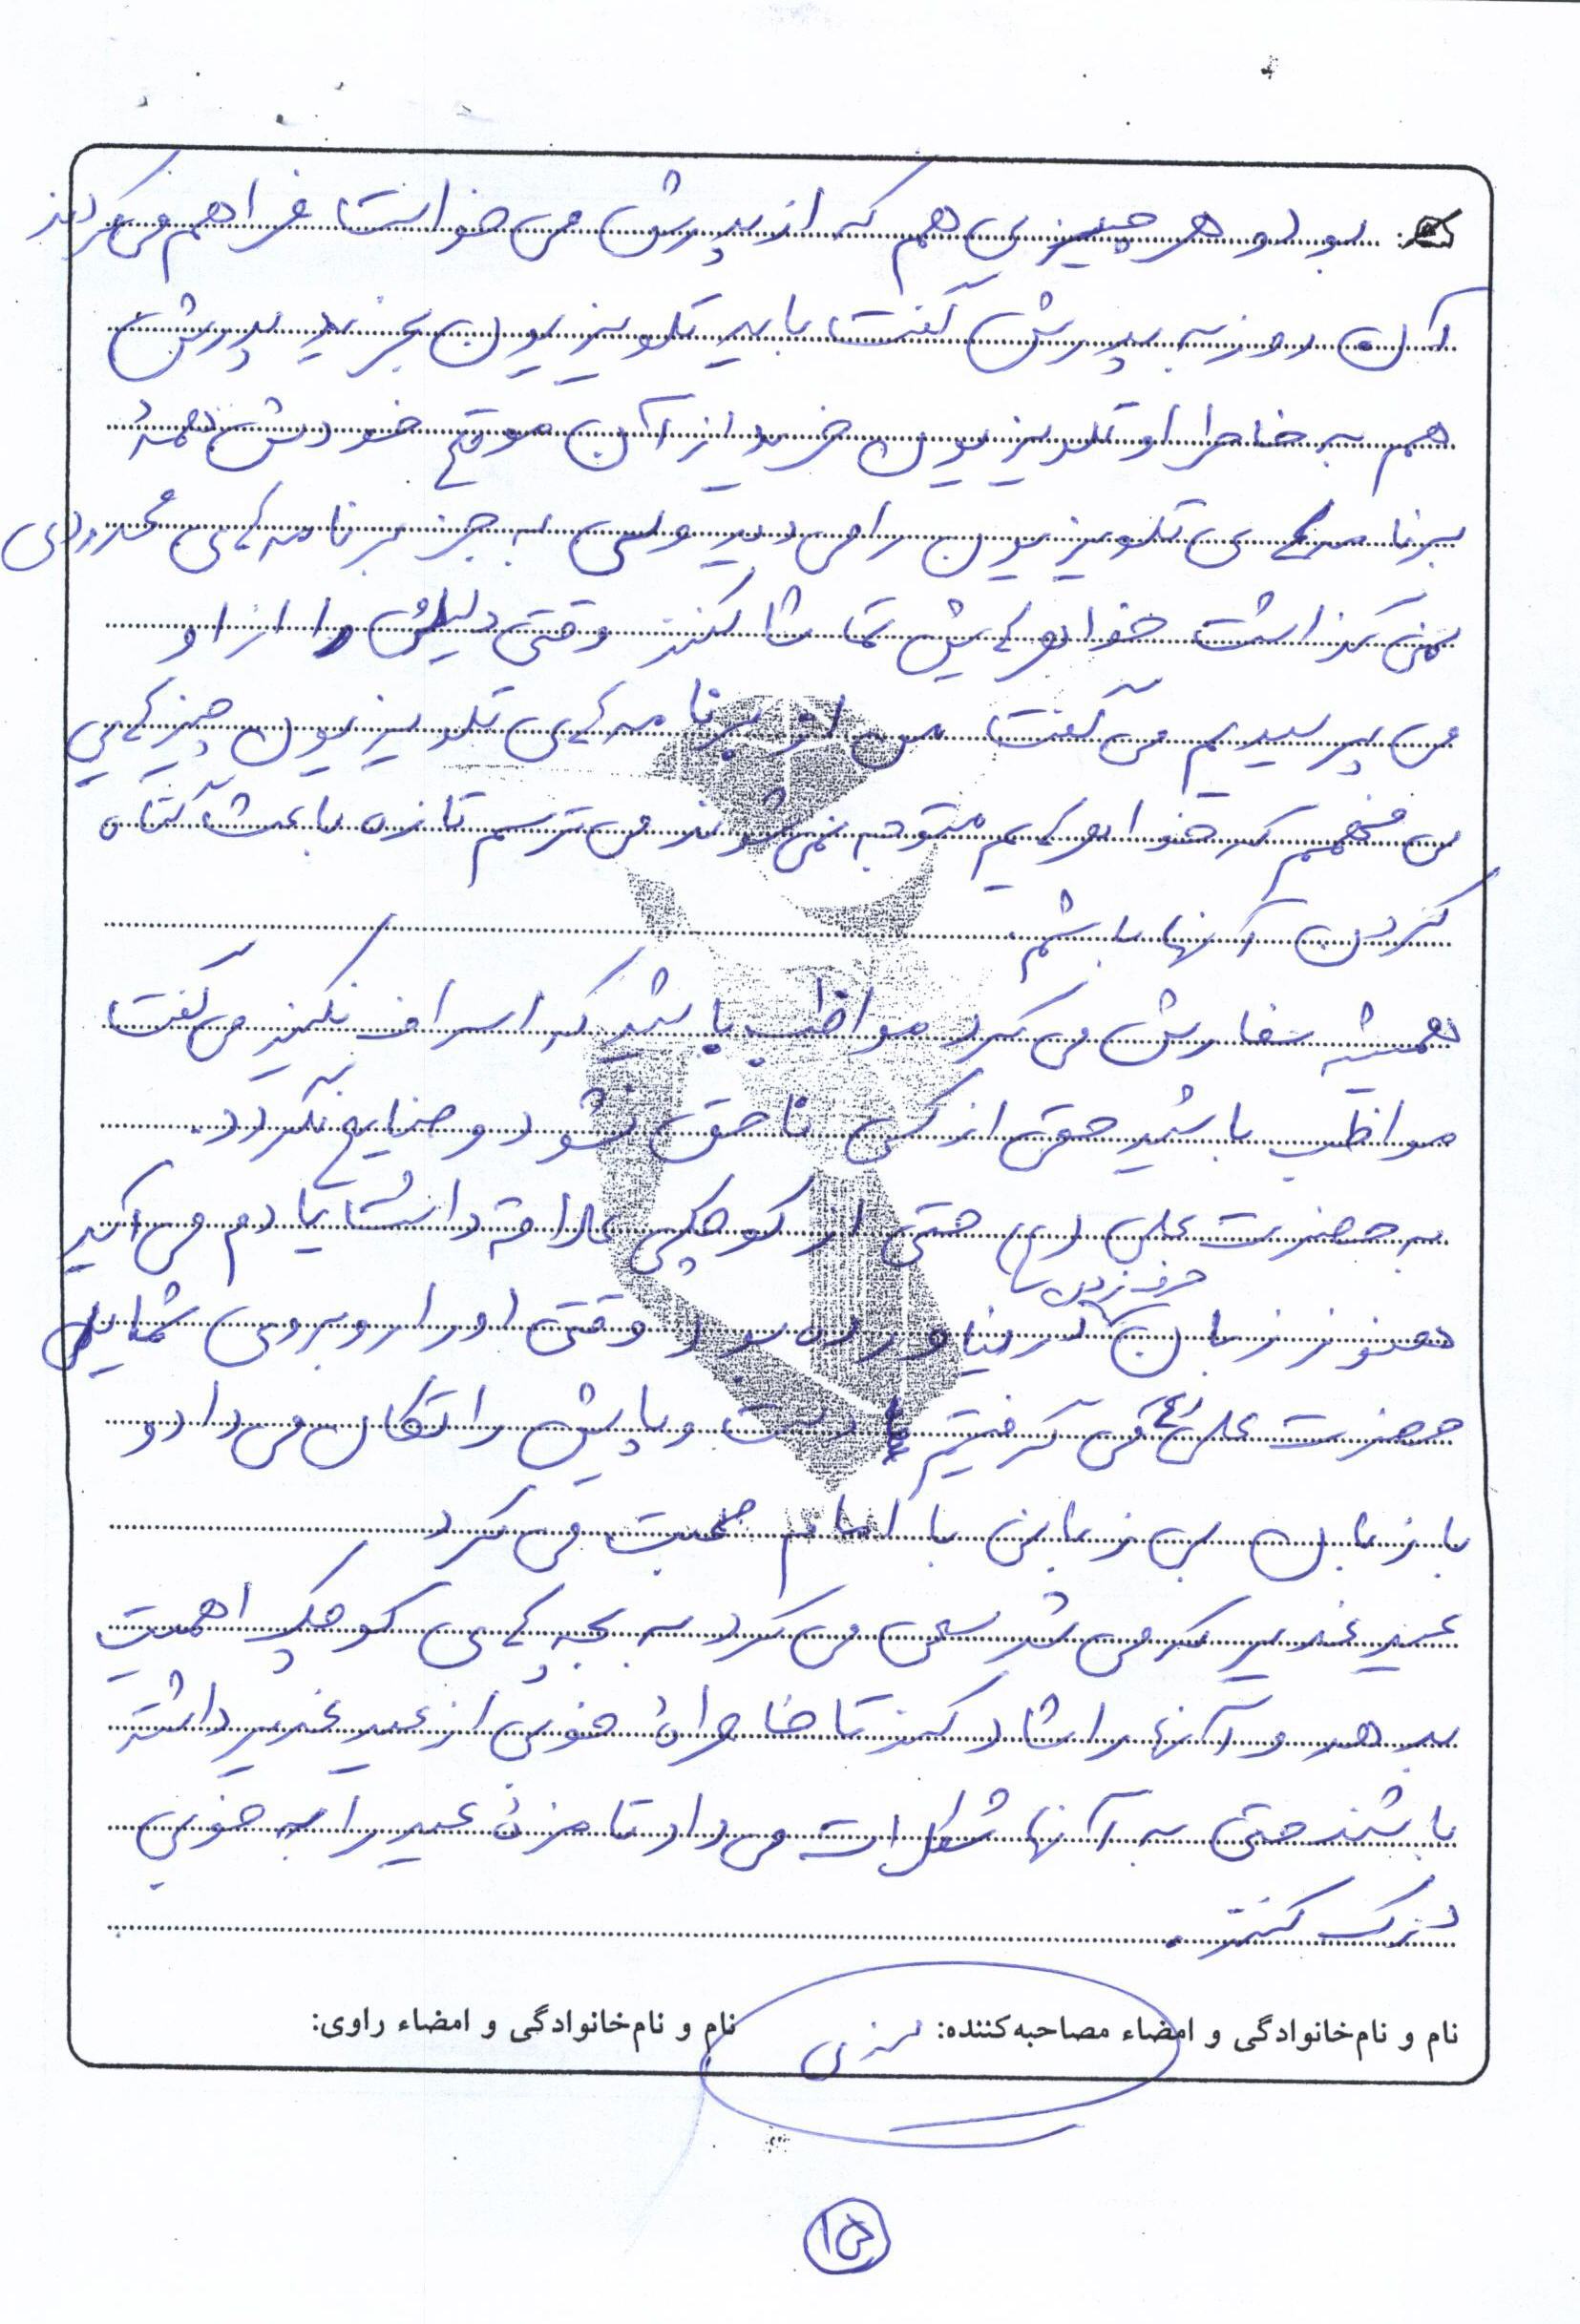 بود و هر چیزی هم که از پدرش می خواست فراهم می کردند
آن روز به پدرش گفت باید تلویزیون بخرید پدرش
هم به خاطر او تلویزیون خرید از آن موقع خودش همهٔ
برنامه های تلویزیون را می دید ولی به جز برنامه های محدودی
نمی گذاشت خواهرهایش تماشا کنند وقتی دلیلش را از او
می پرسیدیم می گفت من از برنامه های تلویزیون چیزهایی
می فهمم که خواهرهایم متوجه نمی شوند می ترسم تازه باعث گناه
کردن آنها باشم
همیشه سفارش می کرد مواظب باشید که اسراف نکنید می گفت
مواظب باشید حقی از کسی ناحق نشود و ضایع نگردد.
به حضرت علی (ع) حتی از کوچکی علاقه داشت یادم می آید
هنوز زبان حرف زدن در نیاورده بود وقتی او را روبروی شمایل
حضرت علی (ع) می گرفتیم دست و پایش را تکان می داد و
با زبان بی زبانی با امام صحبت می کرد
عید غدیر که می شد سعی می کرد به بچه های کوچک اهمیت
بدهد و آنها را شاد کند تا خاطرهٔ خوبی از عید غدیر داشته
باشند حتی به آنها شکلات می داد تا مزهٔ عید را به خوبی
درک کنند.
نام و نام‌خانوادگی و امضاء مصاحبه‌کننده: نام و نام‌خانوادگی و امضاء راوی:
۱۵